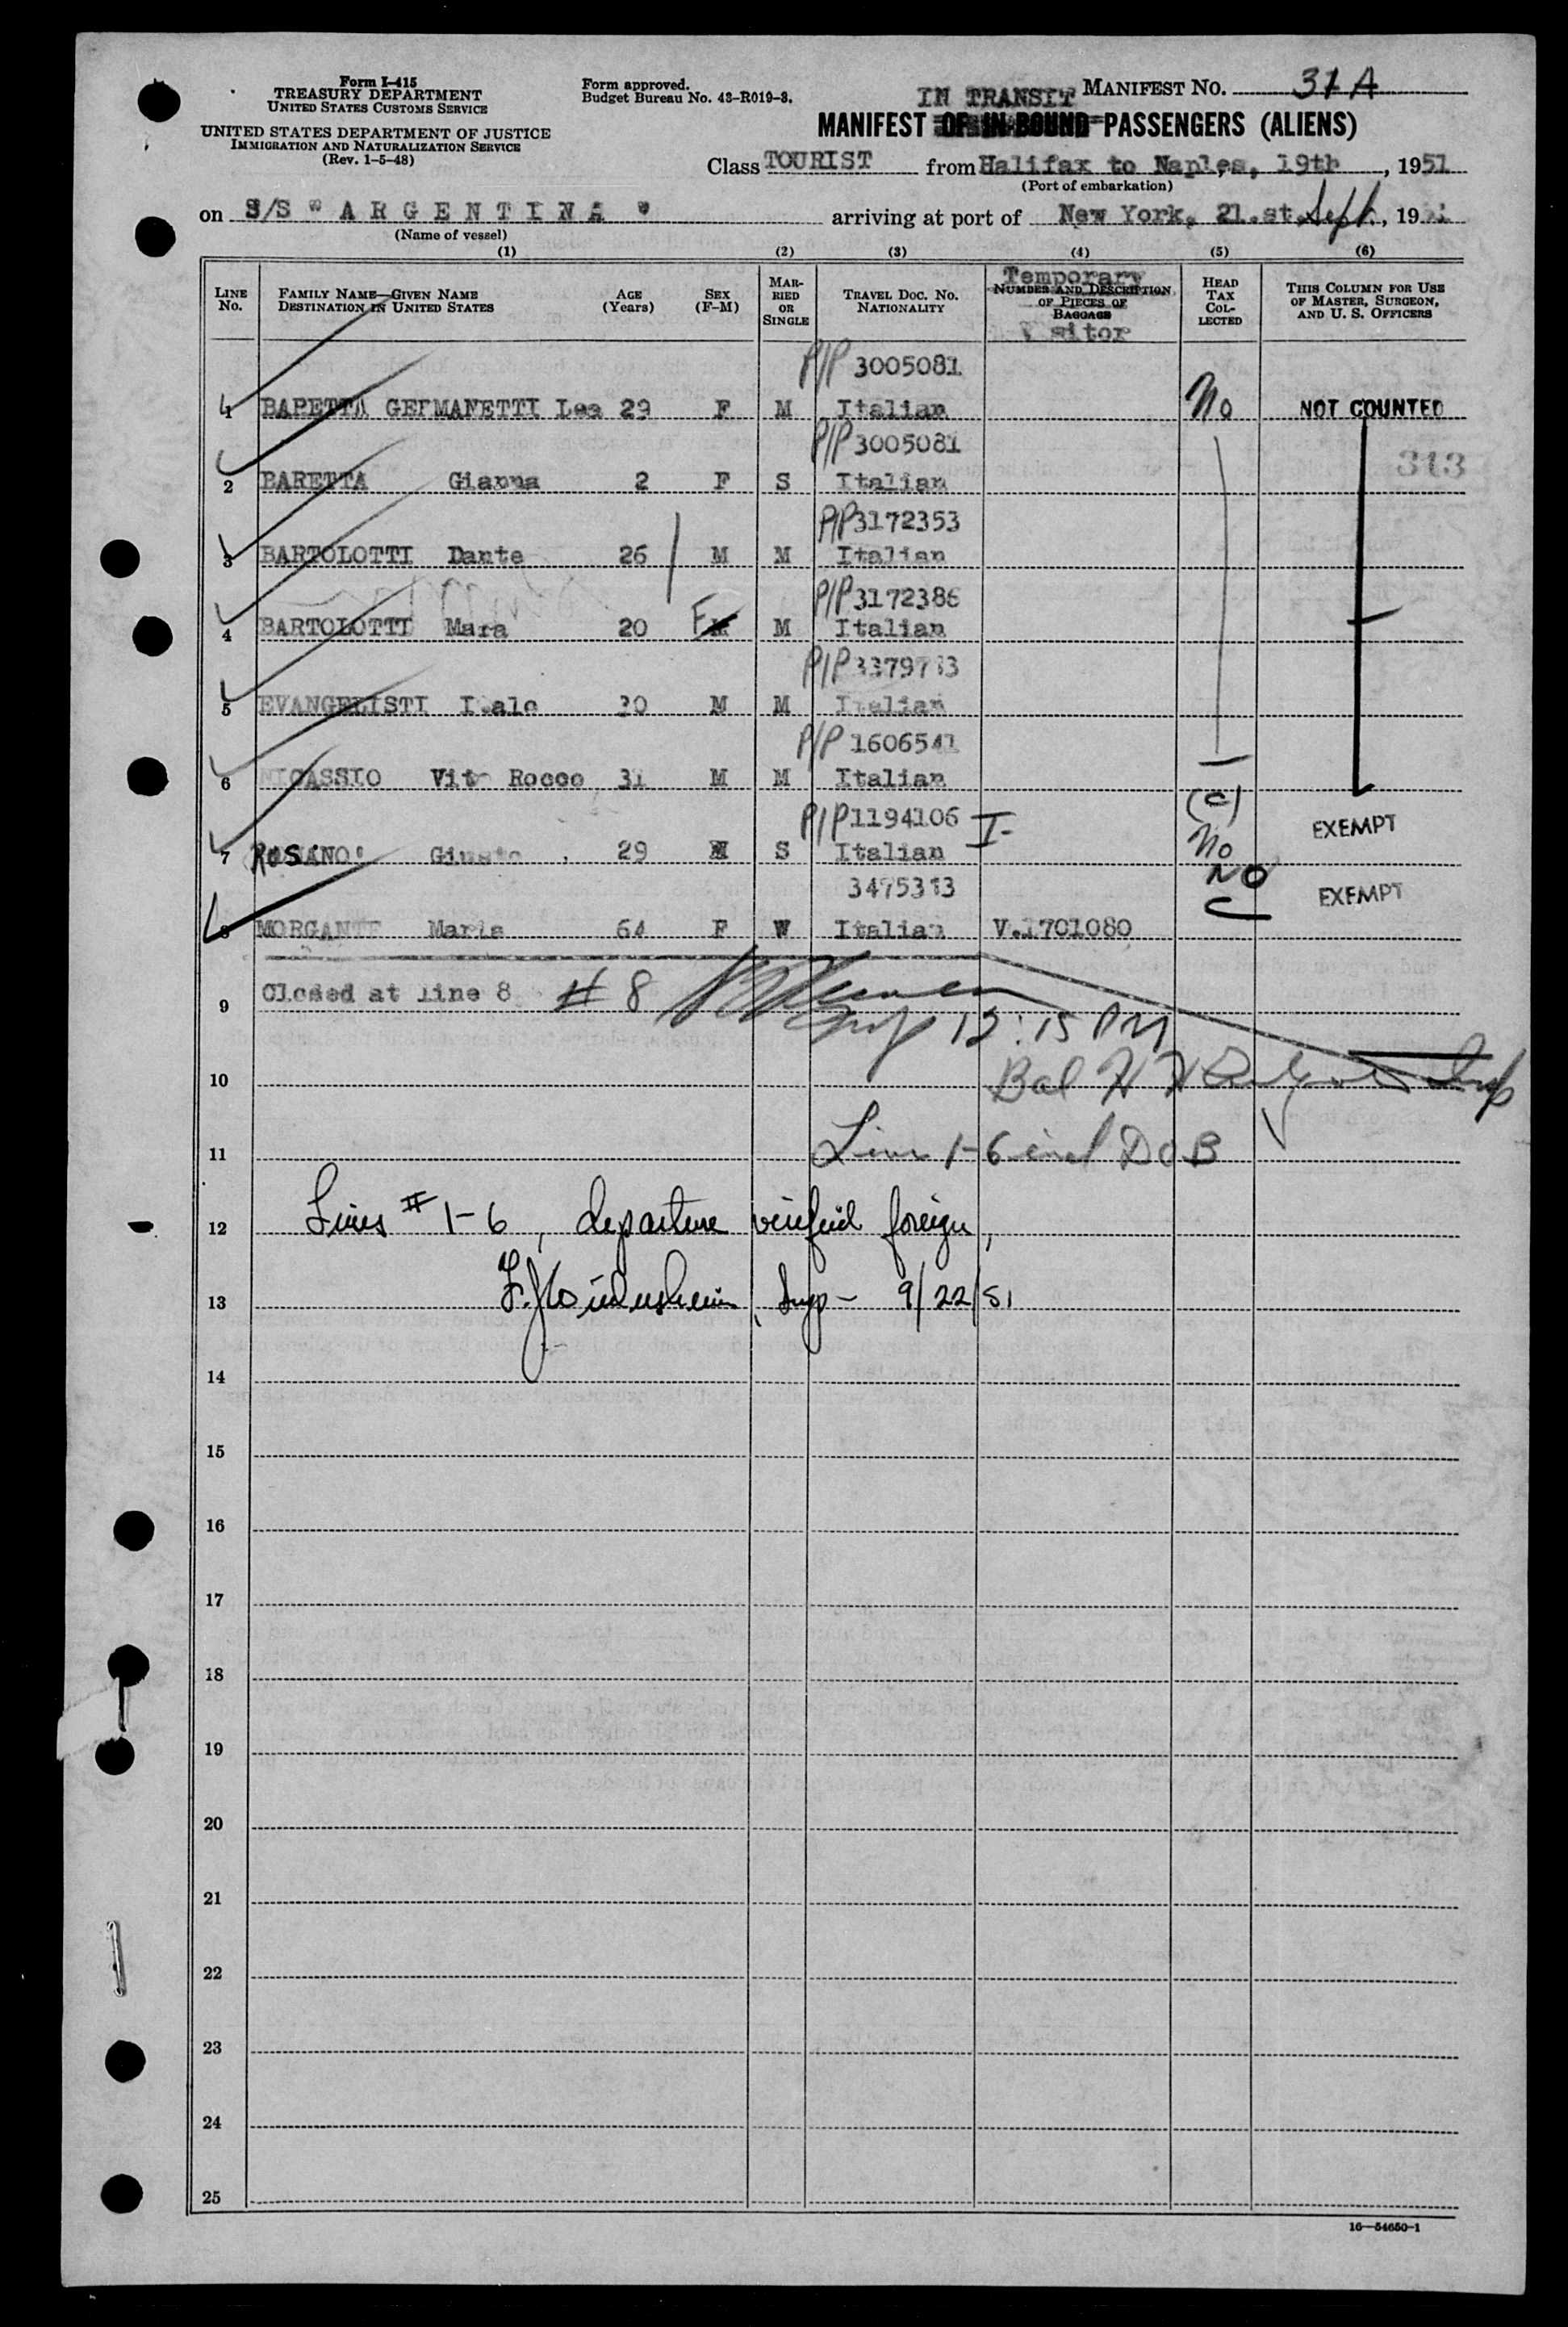 Form I-415
TREASURY DEPARTMENT
UNITED STATES CUSTOMS SERVICE
UNITED STATES DEPARTMENT OF JUSTICE
IMMIGRATION AND NATURALIZATION SERVICE
(Rev. 1-5-48)
Form approved.
Budget Bureau No. 43-R019-3.
MANIFEST NO. 31A
IN TRANSIT
MANIFEST OF IN-BOUND PASSENGERS (ALIENS)
Class TOURIST from Halifax to Naples, 19th, 1951
(Port of embarkation)
on S/S " A R G E N T I N A " arriving at port of New York, 21.st Sept., 19
(Name of vessel)
(1) (2) (3) (4) (5) (6)
LINE NO.
FAMILY NAME—GIVEN NAME
DESTINATION IN UNITED STATES
AGE (Years)
SEX (F-M)
MARRIED OR SINGLE
TRAVEL DOC. NO.
NATIONALITY
Temporary
NUMBER AND DESCRIPTION OF PIECES OF BAGGAGE
Visitor
HEAD TAX COLLECTED
THIS COLUMN FOR USE OF MASTER, SURGEON, AND U. S. OFFICERS
P/P 3005081
1 BARETTA GERMANETTI Lea 29 F M Italian No NOT COUNTED
P/P 3005081
313
2 BARETTA Gianna 2 F S Italian
P/P 3172353
3 BARTOLOTTI Dante 26 M M Italian
P/P 3172386
4 BARTOLOTTI Mara 20 F M Italian
P/P
5 EVANGELISTI Italo 30 M M Italian
P/P 1606541
6 NICASSIO Vito Rocco 31 M M Italian
P/P 1194106 I- (C) EXEMPT
7 Giusto 29 M S Italian No
3475313 NO EXEMPT
8 MORGANTE Maria 64 F W Italian V.1701080 C
9 Closed at line 8 # 8
Insp 12:15 PM
10 Bal Insp
11 Line 1-6 incl D O B
12 Lines # 1-6, departure verified foreign,
13 Insp - 9/22/51
14
15
16
17
18
19
20
21
22
23
24
25
16—54650-1